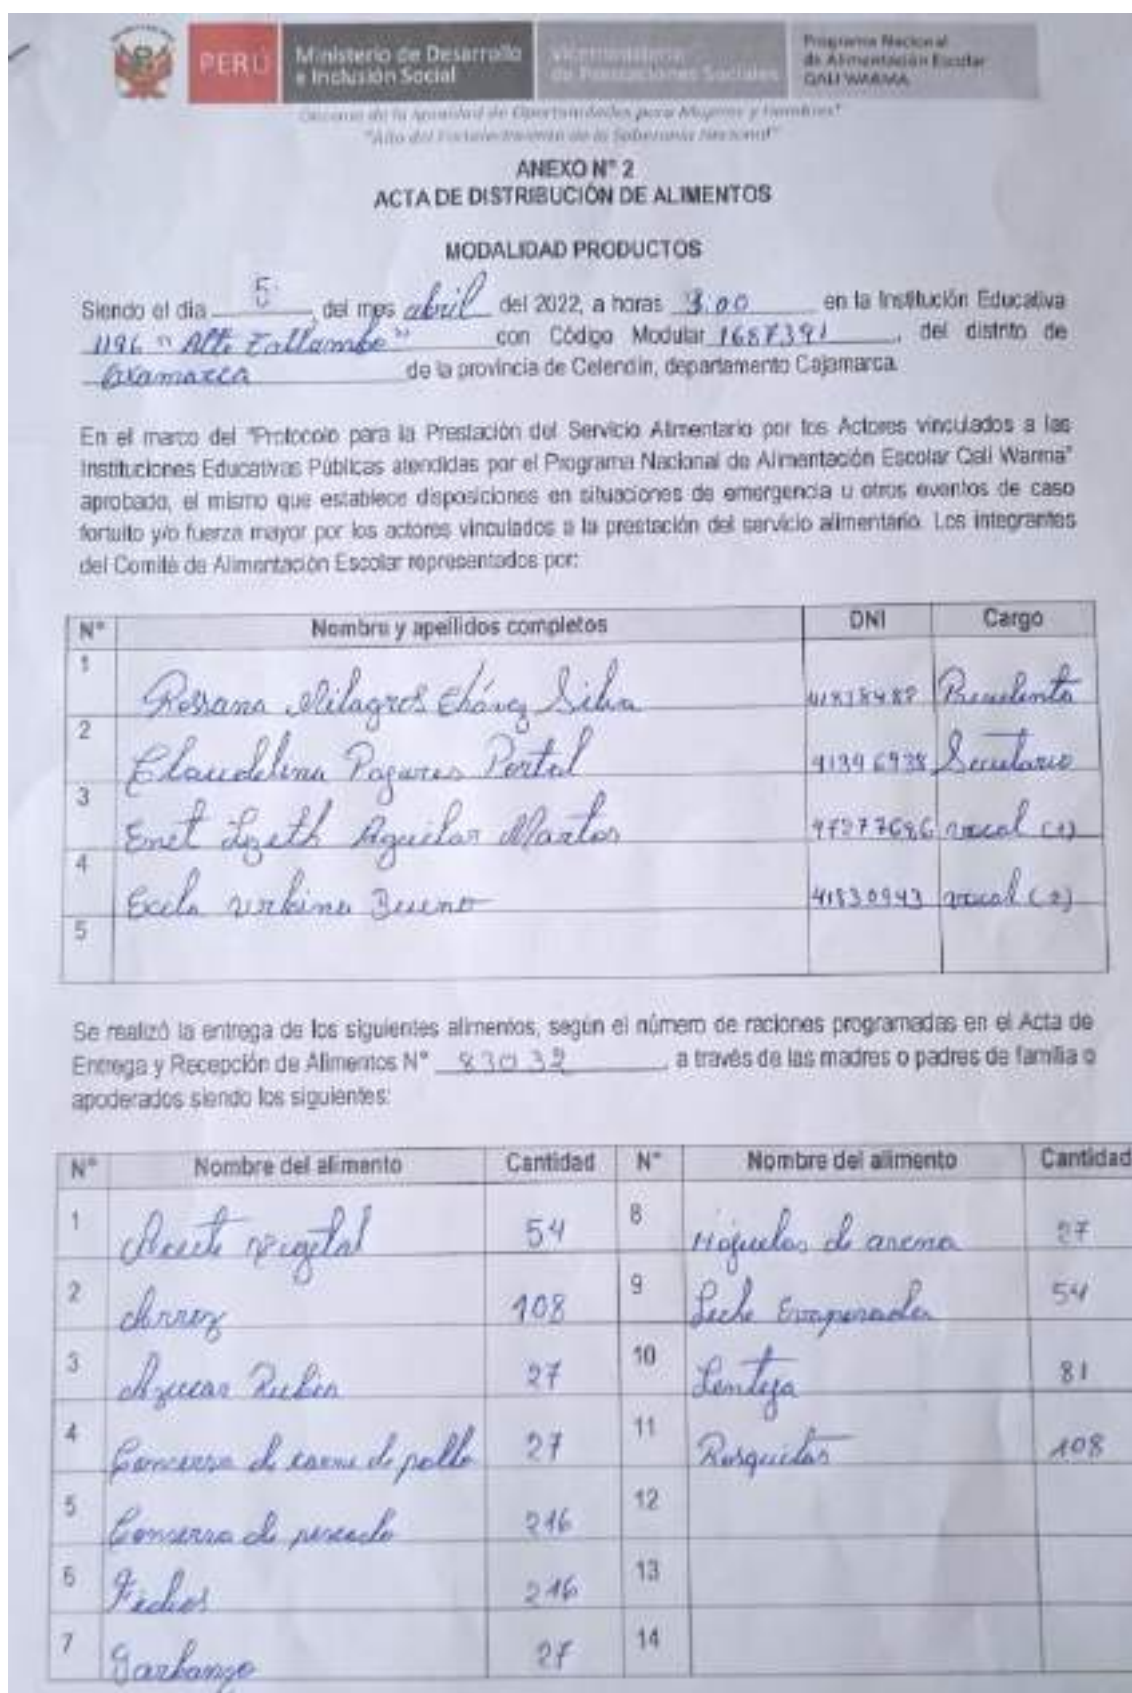 PERÚ
Ministerio de Desarrollo
e Inclusión Social
Viceministerio
de Prestaciones Sociales
Programa Nacional
de Alimentación Escolar
QALI WARMA
"Decenio de la Igualdad de Oportunidades para Mujeres y Hombres"
"Año del Fortalecimiento de la Soberanía Nacional"
ANEXO N° 2
ACTA DE DISTRIBUCIÓN DE ALIMENTOS
MODALIDAD PRODUCTOS
Siendo el dia 5 del mes abril del 2022, a horas 3:00 en la Institución Educativa
1196 " Alto Tallambo " con Código Modular 1687391, del distrito de
Oxamarca de la provincia de Celendín, departamento Cajamarca.
En el marco del "Protocolo para la Prestación del Servicio Alimentario por los Actores vinculados a las
Instituciones Educativas Públicas atendidas por el Programa Nacional de Alimentación Escolar Qali Warma"
aprobado, el mismo que establece disposiciones en situaciones de emergencia u otros eventos de caso
fortuito y/o fuerza mayor por los actores vinculados a la prestación del servicio alimentario. Los integrantes
del Comité de Alimentación Escolar representados por:
N° Nombre y apellidos completos DNI Cargo
1 Rossana Milagros Chávez Silva Presidenta
2 Claudelina Pagares Portal 41396938 Secretario
3 Enet Lizeth Aguilar Martos 47277696 vocal (1)
4 Urbina Bueno 41830943 vocal (2)
5
Se realizó la entrega de los siguientes alimentos, según el número de raciones programadas en el Acta de
Entrega y Recepción de Alimentos N° 83032, a través de las madres o padres de familia o
apoderados siendo los siguientes:
N° Nombre del alimento Cantidad N° Nombre del alimento Cantidad
1 Aceite vegetal 54 8 Hojuelas de avena 27
2 Arroz 108 9 Leche Evaporada 54
3 Azucar Rubia 27 10 Lenteja 81
4 Conserva de carne de pollo 27 11 Rosquitas 108
5 Conserva de pescado 216 12
6 Fideos 216 13
7 Garbanzo 27 14